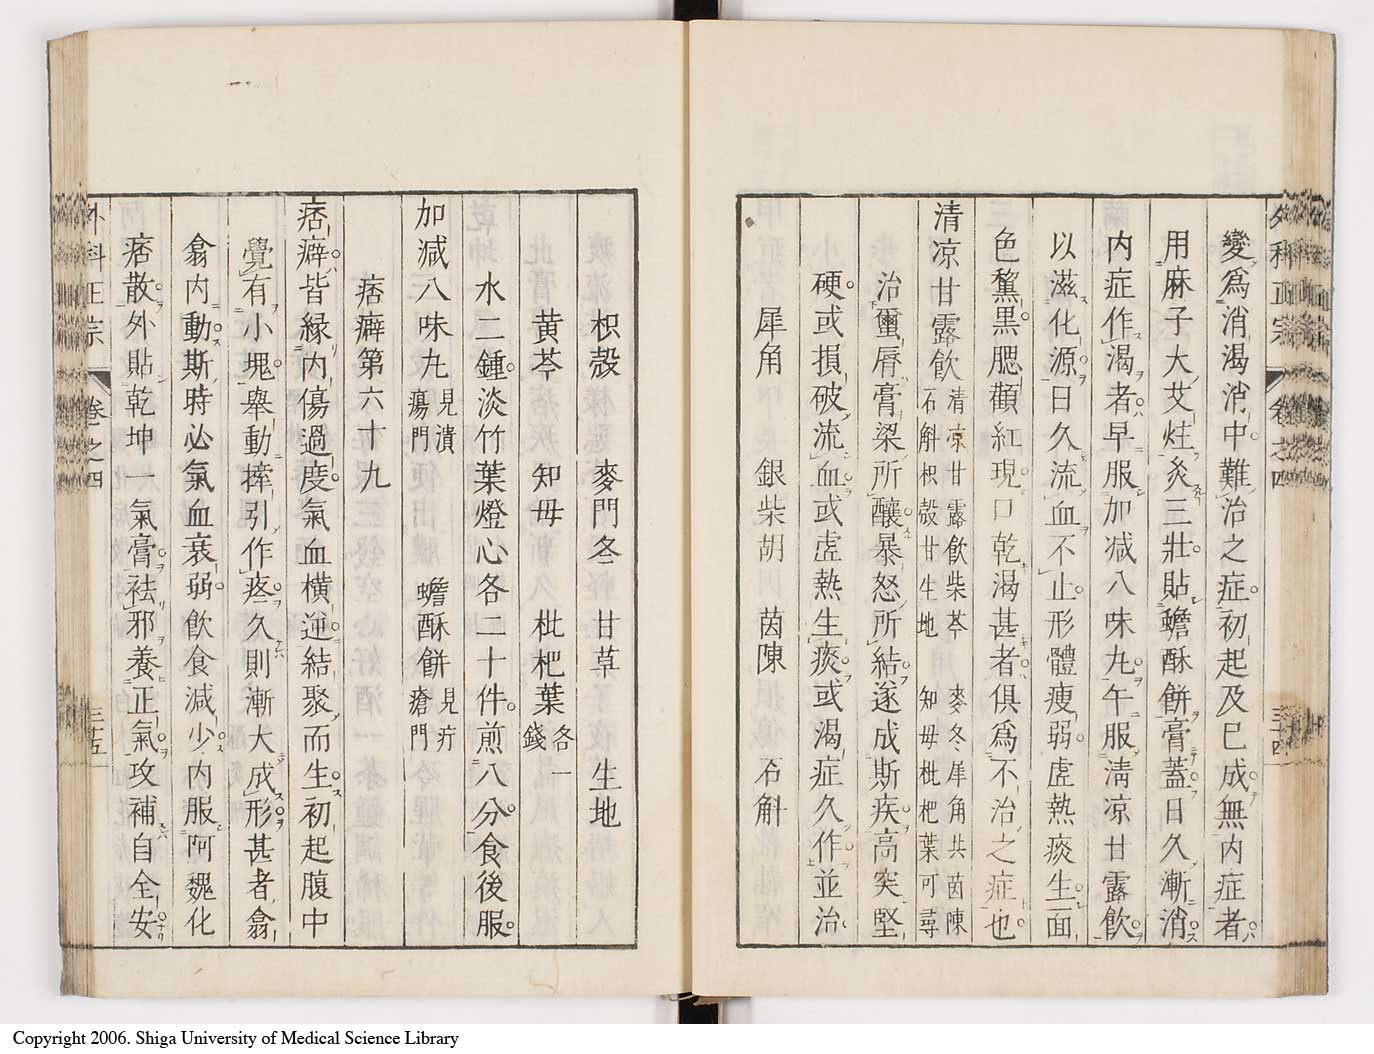 變爲消渴消中難治之症初起及已成無内症者
用麻子大艾炷灸三壯貼蟾酥餅膏蓋日久漸消
内症作渴者早服加減八味丸午服淸凉甘露飲
以滋化源日久流血不止形體瘦弱虚熱痰生面
色黧黒腮顴紅現口乾渴甚者俱爲不治之症也
清凉甘露飲
清凉甘露飲柴苓 麥冬犀角共茵陳
石斛枳殻甘生地 知毋枇杷葉可尋
治蠒脣膏粱所釀暴怒所結遂成斯疾高突堅
硬或損破流血或虚熱生痰或渴症久作並治
犀角 銀柴胡 茵陳 石斛
枳殻 麥門冬 甘草 生地
黄芩 知毋 枇杷葉各一錢
水二鍾淡竹葉燈心各二十件煎八分食後服
加減八味丸見潰瘍門 蟾酥餅見疔瘡門
痞癖第六十九
痞癖皆緣内傷過度氣血横逆結聚而生初起腹中
覺有小塊舉動牽引作疼久則漸大成形甚者翕
翕内動斯時必氣血衰弱飲食減少内服阿魏化
痞散外貼乾坤一氣膏祛邪養正氣攻補自全安
外科正宗 卷之四 三十四
外科正宗 卷之四 三十五
Copyright 2006. Shiga University of Medical Science Library